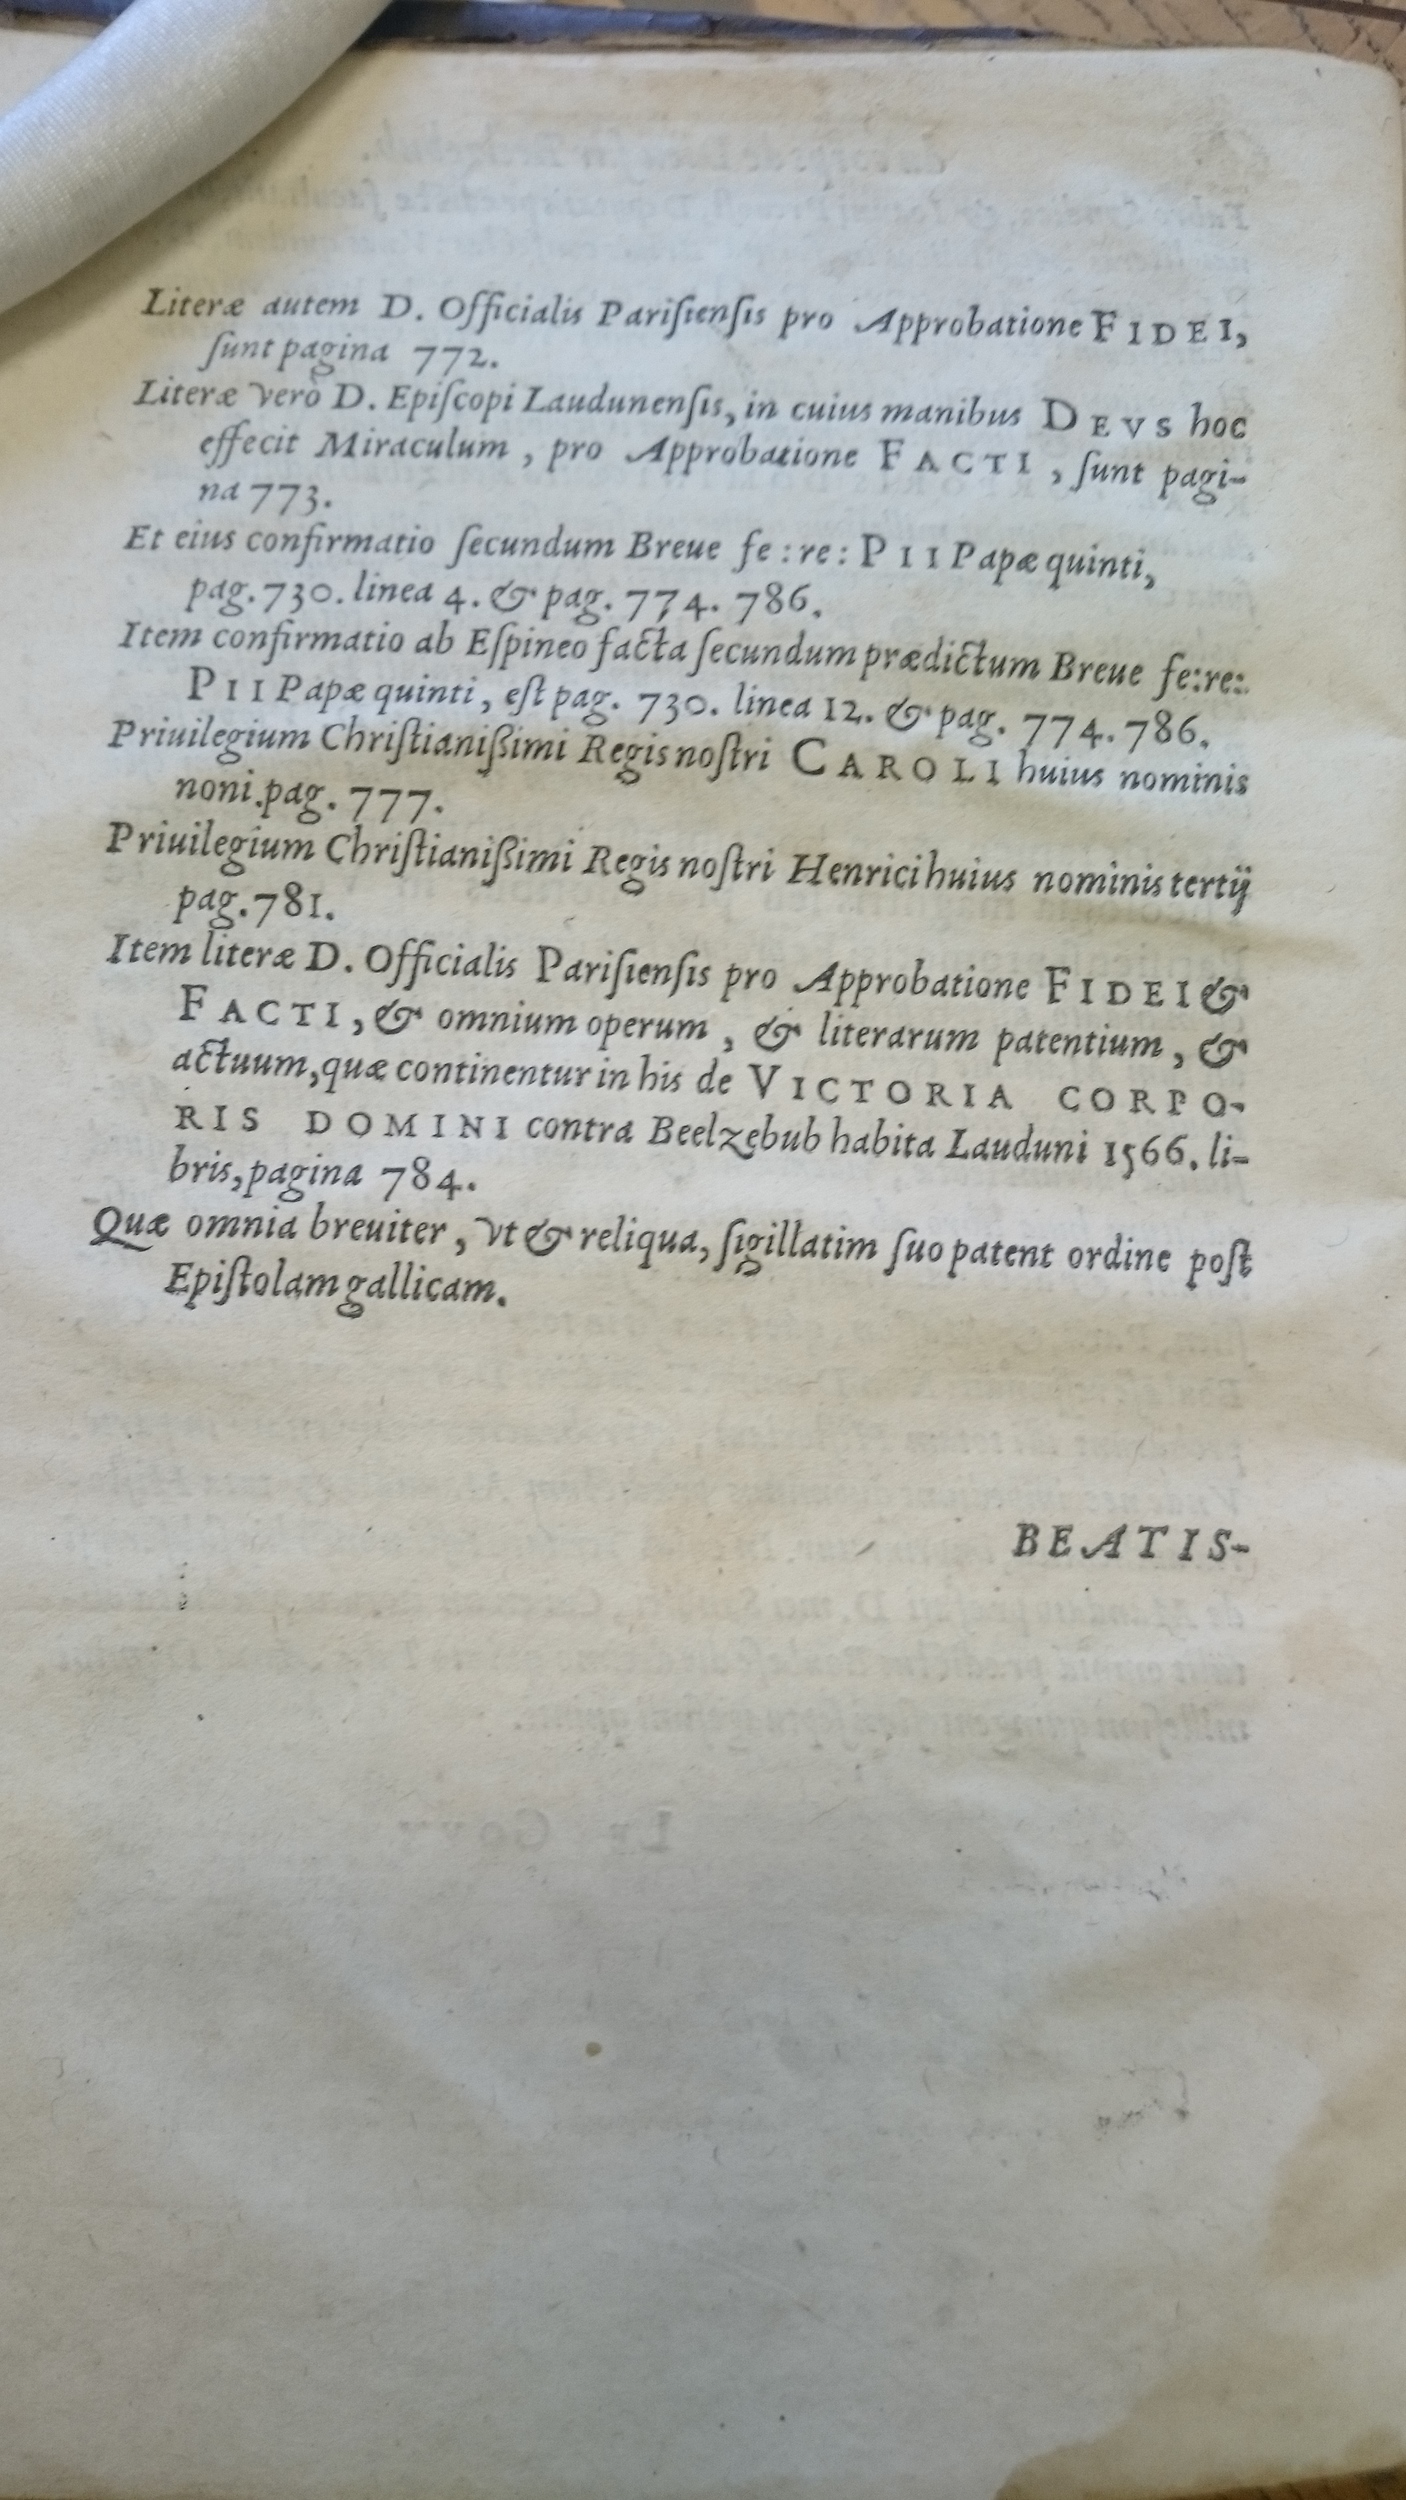 Literæ autem D. Officialis Pariſienſis pro Approbatione FIDEI,
ſunt pagina 772.
Literæ verò D. Epiſcopi Laudunenſis, in cuius manibus DEVS hoc
effecit Miraculum, pro Approbatione FACTI, ſunt pagi-
na 773.
Et eius confirmatio ſecundum Breue fe:re: PII Papæ quinti,
pag. 730. linea 4. & pag. 774. 786.
Item confirmatio ab Eſpineo facta ſecundum prædictum Breue fe:re:
PII Papæ quinti, eſt pag. 730. linea 12. & pag. 774. 786.
Priuilegium Chriſtianiſſimi Regis noſtri CAROLI huius nominis
noni.pag. 777.
Priuilegium Chriſtianiſſimi Regis noſtri Henrici huius nominis tertij
pag. 781.
Item literæ D. Officialis Pariſienſis pro Approbatione FIDEI &
FACTI, & omnium operum, & literarum patentium, &
actuum, quæ continentur in his de VICTORIA CORPO-
RIS DOMINI contra Beelzebub habita Lauduni 1566. li-
bris, pagina 784.
Quæ omnia breuiter, vt & reliqua, ſigillatim ſuo patent ordine poſt
Epiſtolam gallicam.
BEATIS-